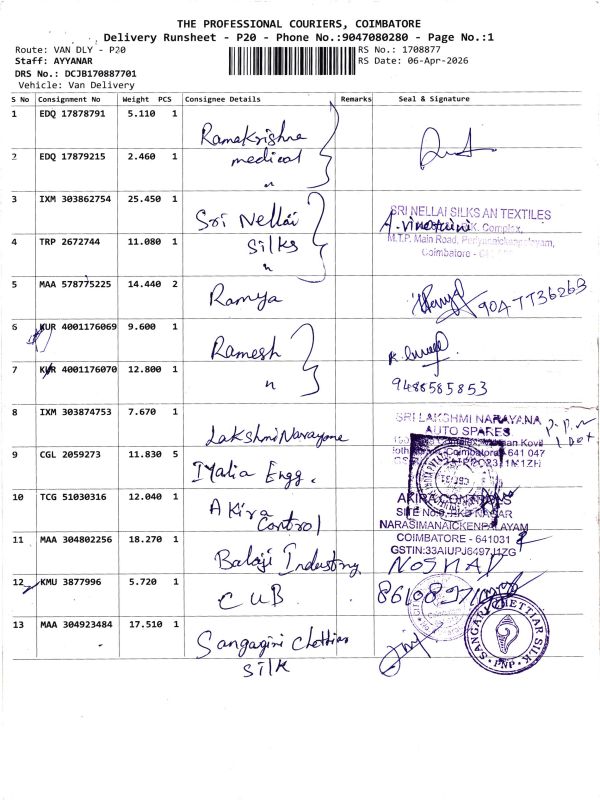 THE PROFESSIONAL COURIERS, COIMBATORE
Delivery Runsheet - P20 - Phone No.:9047080280 - Page No.:1
Route: VAN DLY - P20
RS No.: 1708877
Staff: AYYANAR
RS Date: 06-Apr-2026
DRS No.: DCJB170887701
Vehicle: Van Delivery
S No Consignment No Weight PCS Consignee Details Remarks Seal & Signature
1 EDQ 17878791 5.110 1 Ramakrishna
medical
2 EDQ 17879215 2.460 1 "
3 IXM 303862754 25.450 1 Sri Nellai
Silks
SRI NELLAI SILKS AN TEXTILES
K. Complex,
M.T.P. Main Road, Periyanaickenpalayam,
Coimbatore -
4 TRP 2672744 11.080 1 "
5 MAA 578775225 14.440 2 Ramya
6 KUR 4001176069 9.600 1 Ramesh
7 KUR 4001176070 12.800 1 " 9488585853
8 IXM 303874753 7.670 1 Lakshmi Narayane
SRI LAKSHMI NARAYANA
AUTO SPARES
Coimbatore - 641 047
9 CGL 2059273 11.830 5 Italia Engg.
10 TCG 51030316 12.040 1 Akira
Control
AKIRA CONTROLS
NARASIMANAICKENPALAYAM
COIMBATORE - 641031
GSTIN:33AIUPJ6497J1ZG
11 MAA 304802256 18.270 1 Balaji Industry
NOSHAD
12 KMU 3877996 5.720 1 CUB
13 MAA 304923484 17.510 1 Sangagiri Chettiar
Silk
SANGARI CHETTIAR SILK
PNP